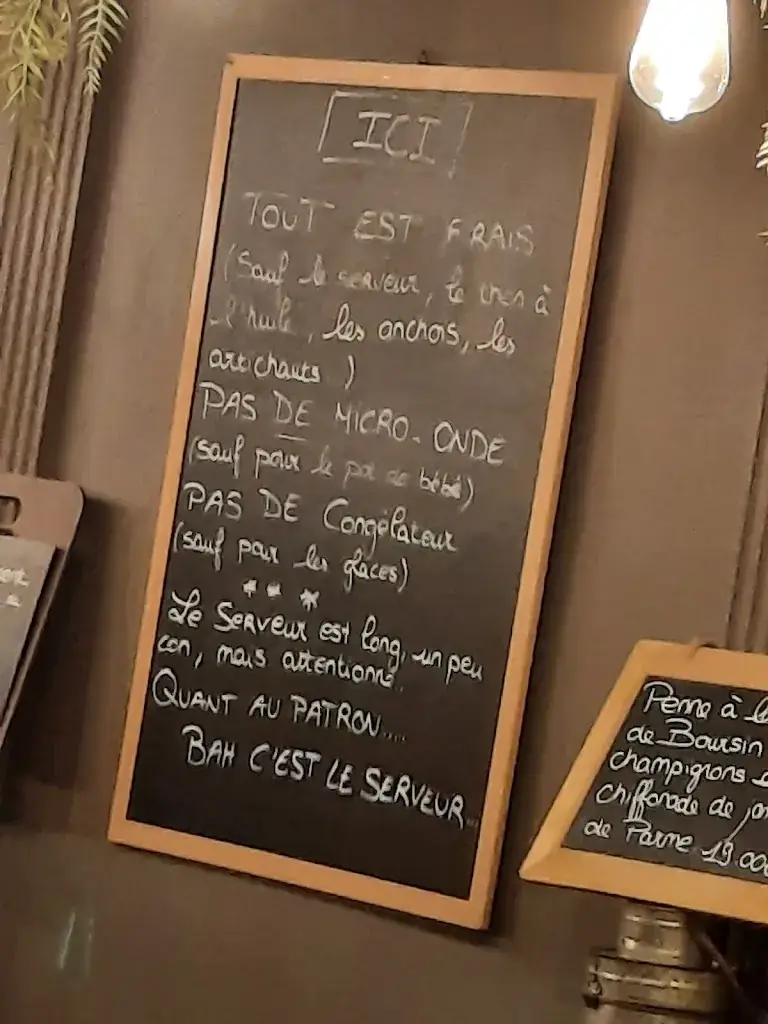 ICI
TOUT EST FRAIS
(Sauf le serveur, le thon à
l'huile, les anchois, les
artichauts )
PAS DE MICRO-ONDE
(sauf pour le pot de bébé)
PAS DE Congélateur
(sauf pour les glaces)
***
Le Serveur est long, un peu
con, mais attentionné.
QUANT AU PATRON....
BAH C'EST LE SERVEUR..
Penne à la
de Boursin
champignons
chiffonade de
de Parme 19.00€